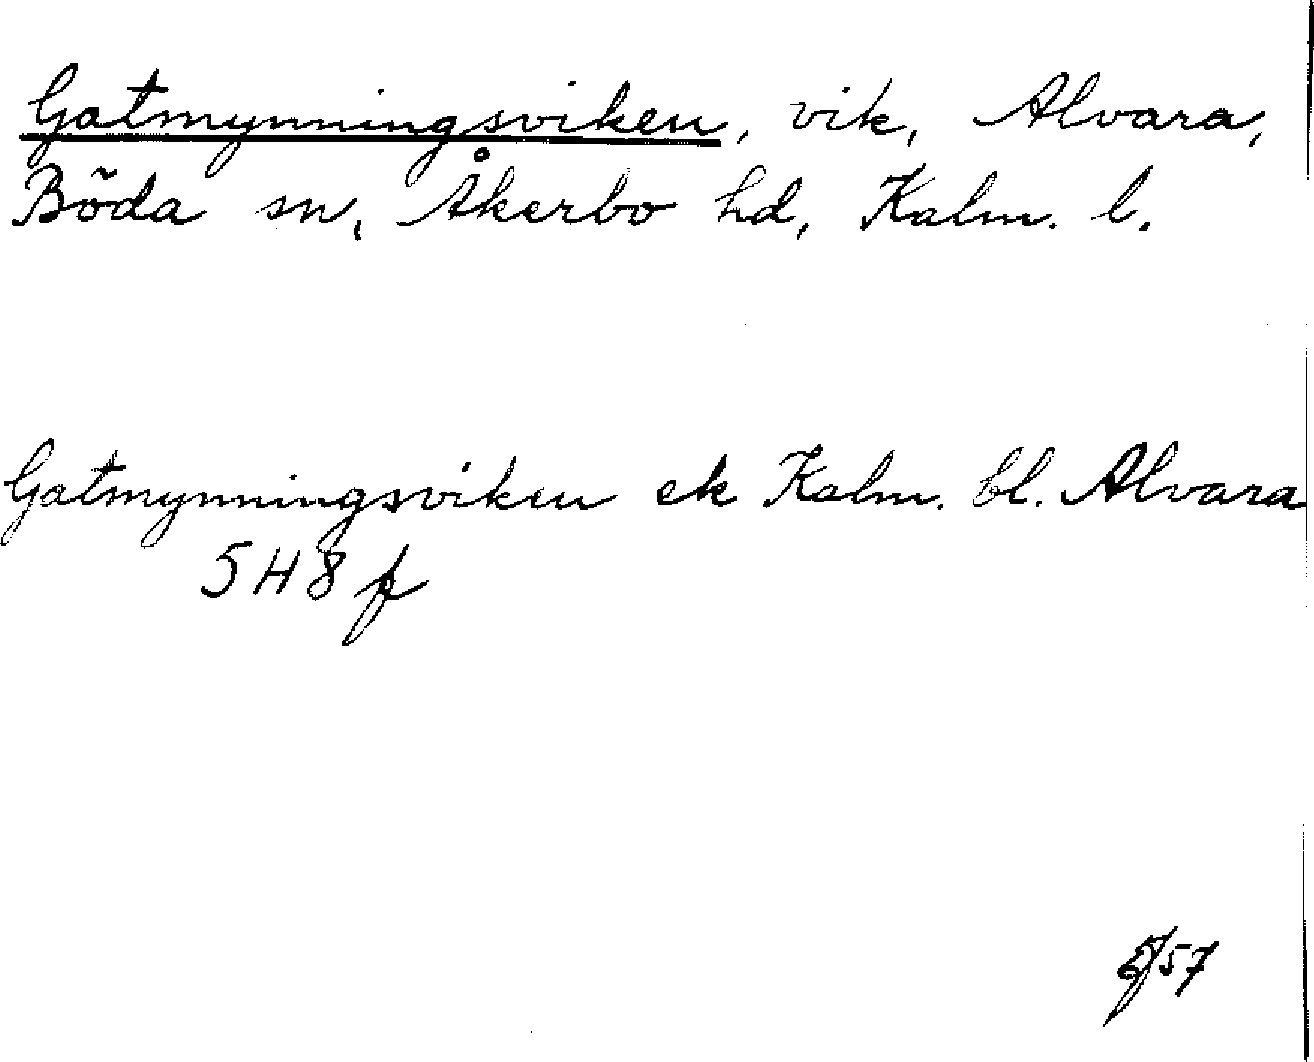 Gatmynningsviken, vik, Alvara,
Böda sn, Åkerbo hd, Kalm. l.
Gatmynningsviken ek Kalm. bl. Alvara
5H8f